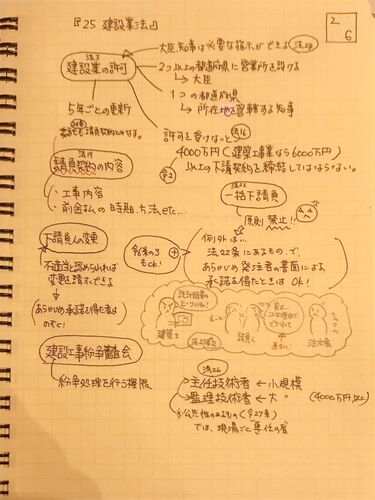 『25 建設業法』
2/6
法3
建設業の許可
大臣、知事は必要な指示ができる 法28
2つ以上の都道府県に営業所を設ける
→大臣
1つの都道府県
→所在地を管轄する知事
5年ごとの更新
請負契約とみなす。
許可を受けないと 法16
令2
4000万円(建築工事業なら6000万円)
以上の下請契約を締結してはならない。
法19
請負契約の内容
・工事内容
・前金払の時期、方法、etc...
法22
一括下請負
原則禁止!!
下請負人の変更
不適当と認められれば
変更を請求できる
あらかじめ承諾を得た者は
のぞく!
令6の3
もOK!
例外は...
法22条にあるもので、
あらかじめ発注者の書面による
承諾を得たときはOK!
建築士
請負人
注文者
建設工事紛争審査会
紛争処理を行う権限
法26
主任技術者 ← 小規模
監理技術者 ← 大 〃 (4000万以上)
※公共性のあるもの(令27条)
では、現場ごと専任の者